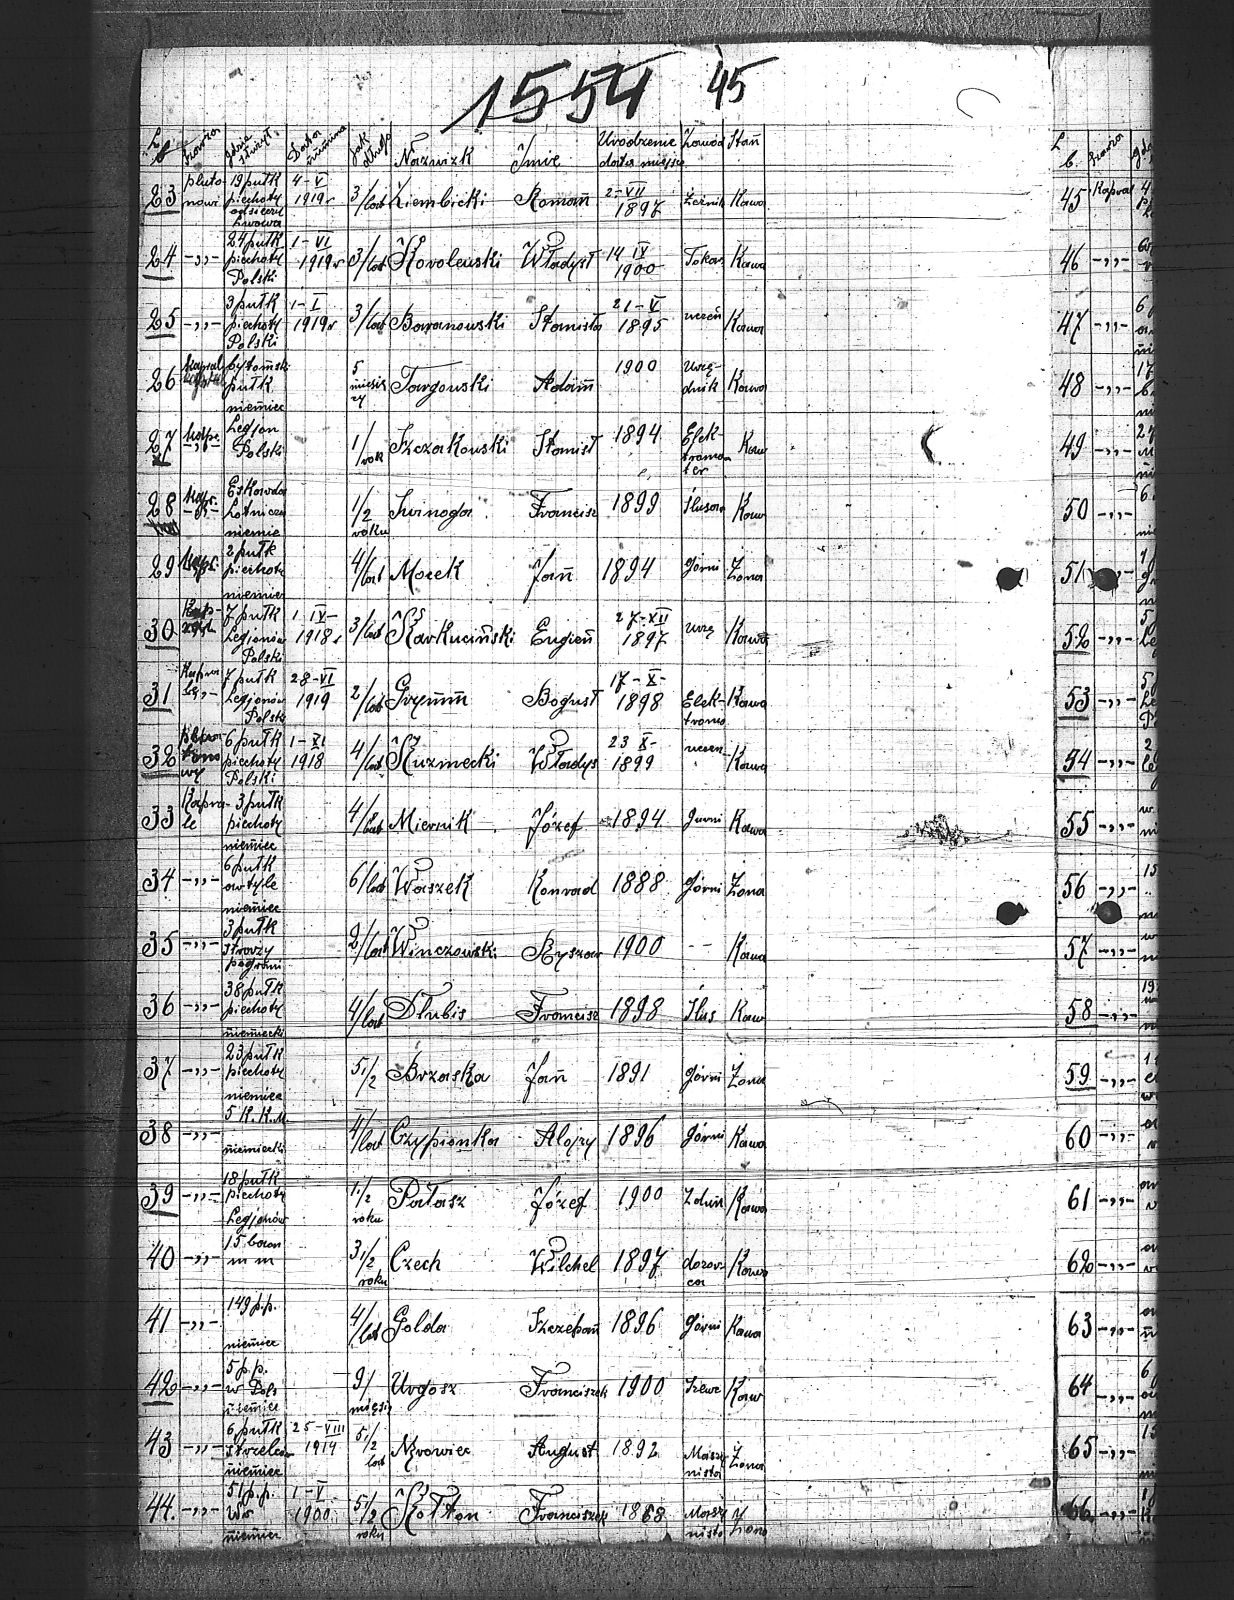 1554 45
L b. Szarża gdzie służył Data miana Jak długo Nazwizk Imie Urodzenie data miejsc Zawód Stań
23 pluto- nowi 19 pułk piechoty odsieczy Lwowa 4-V 1919r 3/lat Ziembicki Romań 2-VII 1897 Kawa
24 -,,- 24 pułk piechoty Polski 1-VI 1919r 3/lat Kovoleuski Władyst 14 IV 1900 Tokar Kawa
25 -,,- 3 pułk piechoty Polski 1-I 1919r 3/lat Baranowski Stanisła 21-V 1895 uczeń Kawa
26 kapral bytomsk pułk niemiec 5 miesię cy Targouski Adam 1900 Urzę- dnik Kawa
27 kapr. -,,- Legjon Polski 1/rok Szczakouski Stanist 1894 Elek- tromon ter Kaw
28 kapr. Eskawdra Lotnicza niemie 1/2 roku Swinoga Francisz 1899 Slusar Kaw
29 kapr. 2 pułk piechoty niemiec 4/lat Macek Jań 1894 Górni Żona
30 Kap- 7 pułk Legjonów Polski 1 IV- 1918r 3/lat Karkuciński Eugień 27-XII 1897 urzę Kawa
31 Kapra le,,- 7 pułk Legjonów Polski 28-VI 1919 2/lat Grymm Bogust 17-X- 1898 Elek- tromo Kawa
32 6 pułk piechoty Polski 1-XI 1918 4/lat Kuzmecki Władys 23 X- 1899 uczen Kawa
33 Kapra- le 3 pułk piechoty niemiec 4/lat Miernik Józef 1894 Gurni Kawa
34 -,,- 6 pułk artyle niemiec 6/lat Waszek Konrad 1888 Górni Żona
35 -,,- 3 pułk Strarzy pograni 2/lat Winczowski Ryszar 1900 -- Kawa
36 -,,- 38 pułk piechoty niemiecki 4/lat Dłubis Francisz 1898 Slus Kaw
37 -,,- 23 pułk piechoty niemiec 5 1/2 Brzaska Jań 1891 Górni Żona
38 -,,- 5 K.K.M niemiecki 4/lat Czypionka Alojzy 1896 Górni Kawa
39 -,,- 18 pułk piechoty Legjonów 1 1/2 roku Pałasz Józef 1900 Zdun Kawa
40 -,,- 15 baon m m 3 1/2 roku Czech Wilchel 1897 dozor- ca Kawa
41 -,,- 149 p.p. niemiec 4/lat Golda Szczepań 1896 Górni Kawa
42 -,,- 5 p.p. niemiec 9/miesię Urgosz Franciszek 1900 Szewc Kaw
43 -,,- 6 pułk Strzelcow niemiec 25-VIII 1914 5 1/2 lat August 1892 Maszy nista Żona
44. -,,- 51 p.p. niemiec 1-V 1900 5 1/2 roku Kołton Franciszek 1868 Maszy nista Żona
L b. Szarża
45 Kapral
46 -,,-
47 -,,-
48 -,,-
49 -,,-
50 -,,-
51 -,,-
52 -,,-
53 -,,-
54 -,,-
55 -,,-
56 -,,-
57 -,,-
58 -,,-
59 -,,-
60 -,,-
61 -,,-
62 -,,-
63 -,,-
64 -,,-
65 -,,-
66 -,,-